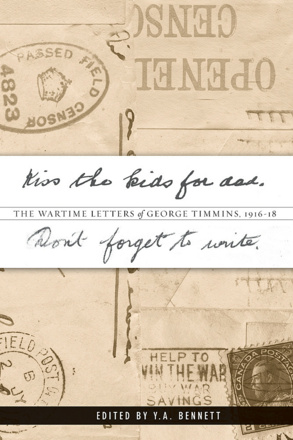 CENSOR
OPENED
PASSED FIELD
CENSOR
4823
Kiss the kids for dad.
THE WARTIME LETTERS of GEORGE TIMMINS, 1916-18
Don't forget to write.
FIELD POST
HELP TO
WIN THE WAR
BUY WAR
SAVINGS
CANADA POSTAGE
EDITED BY Y.A. BENNETT